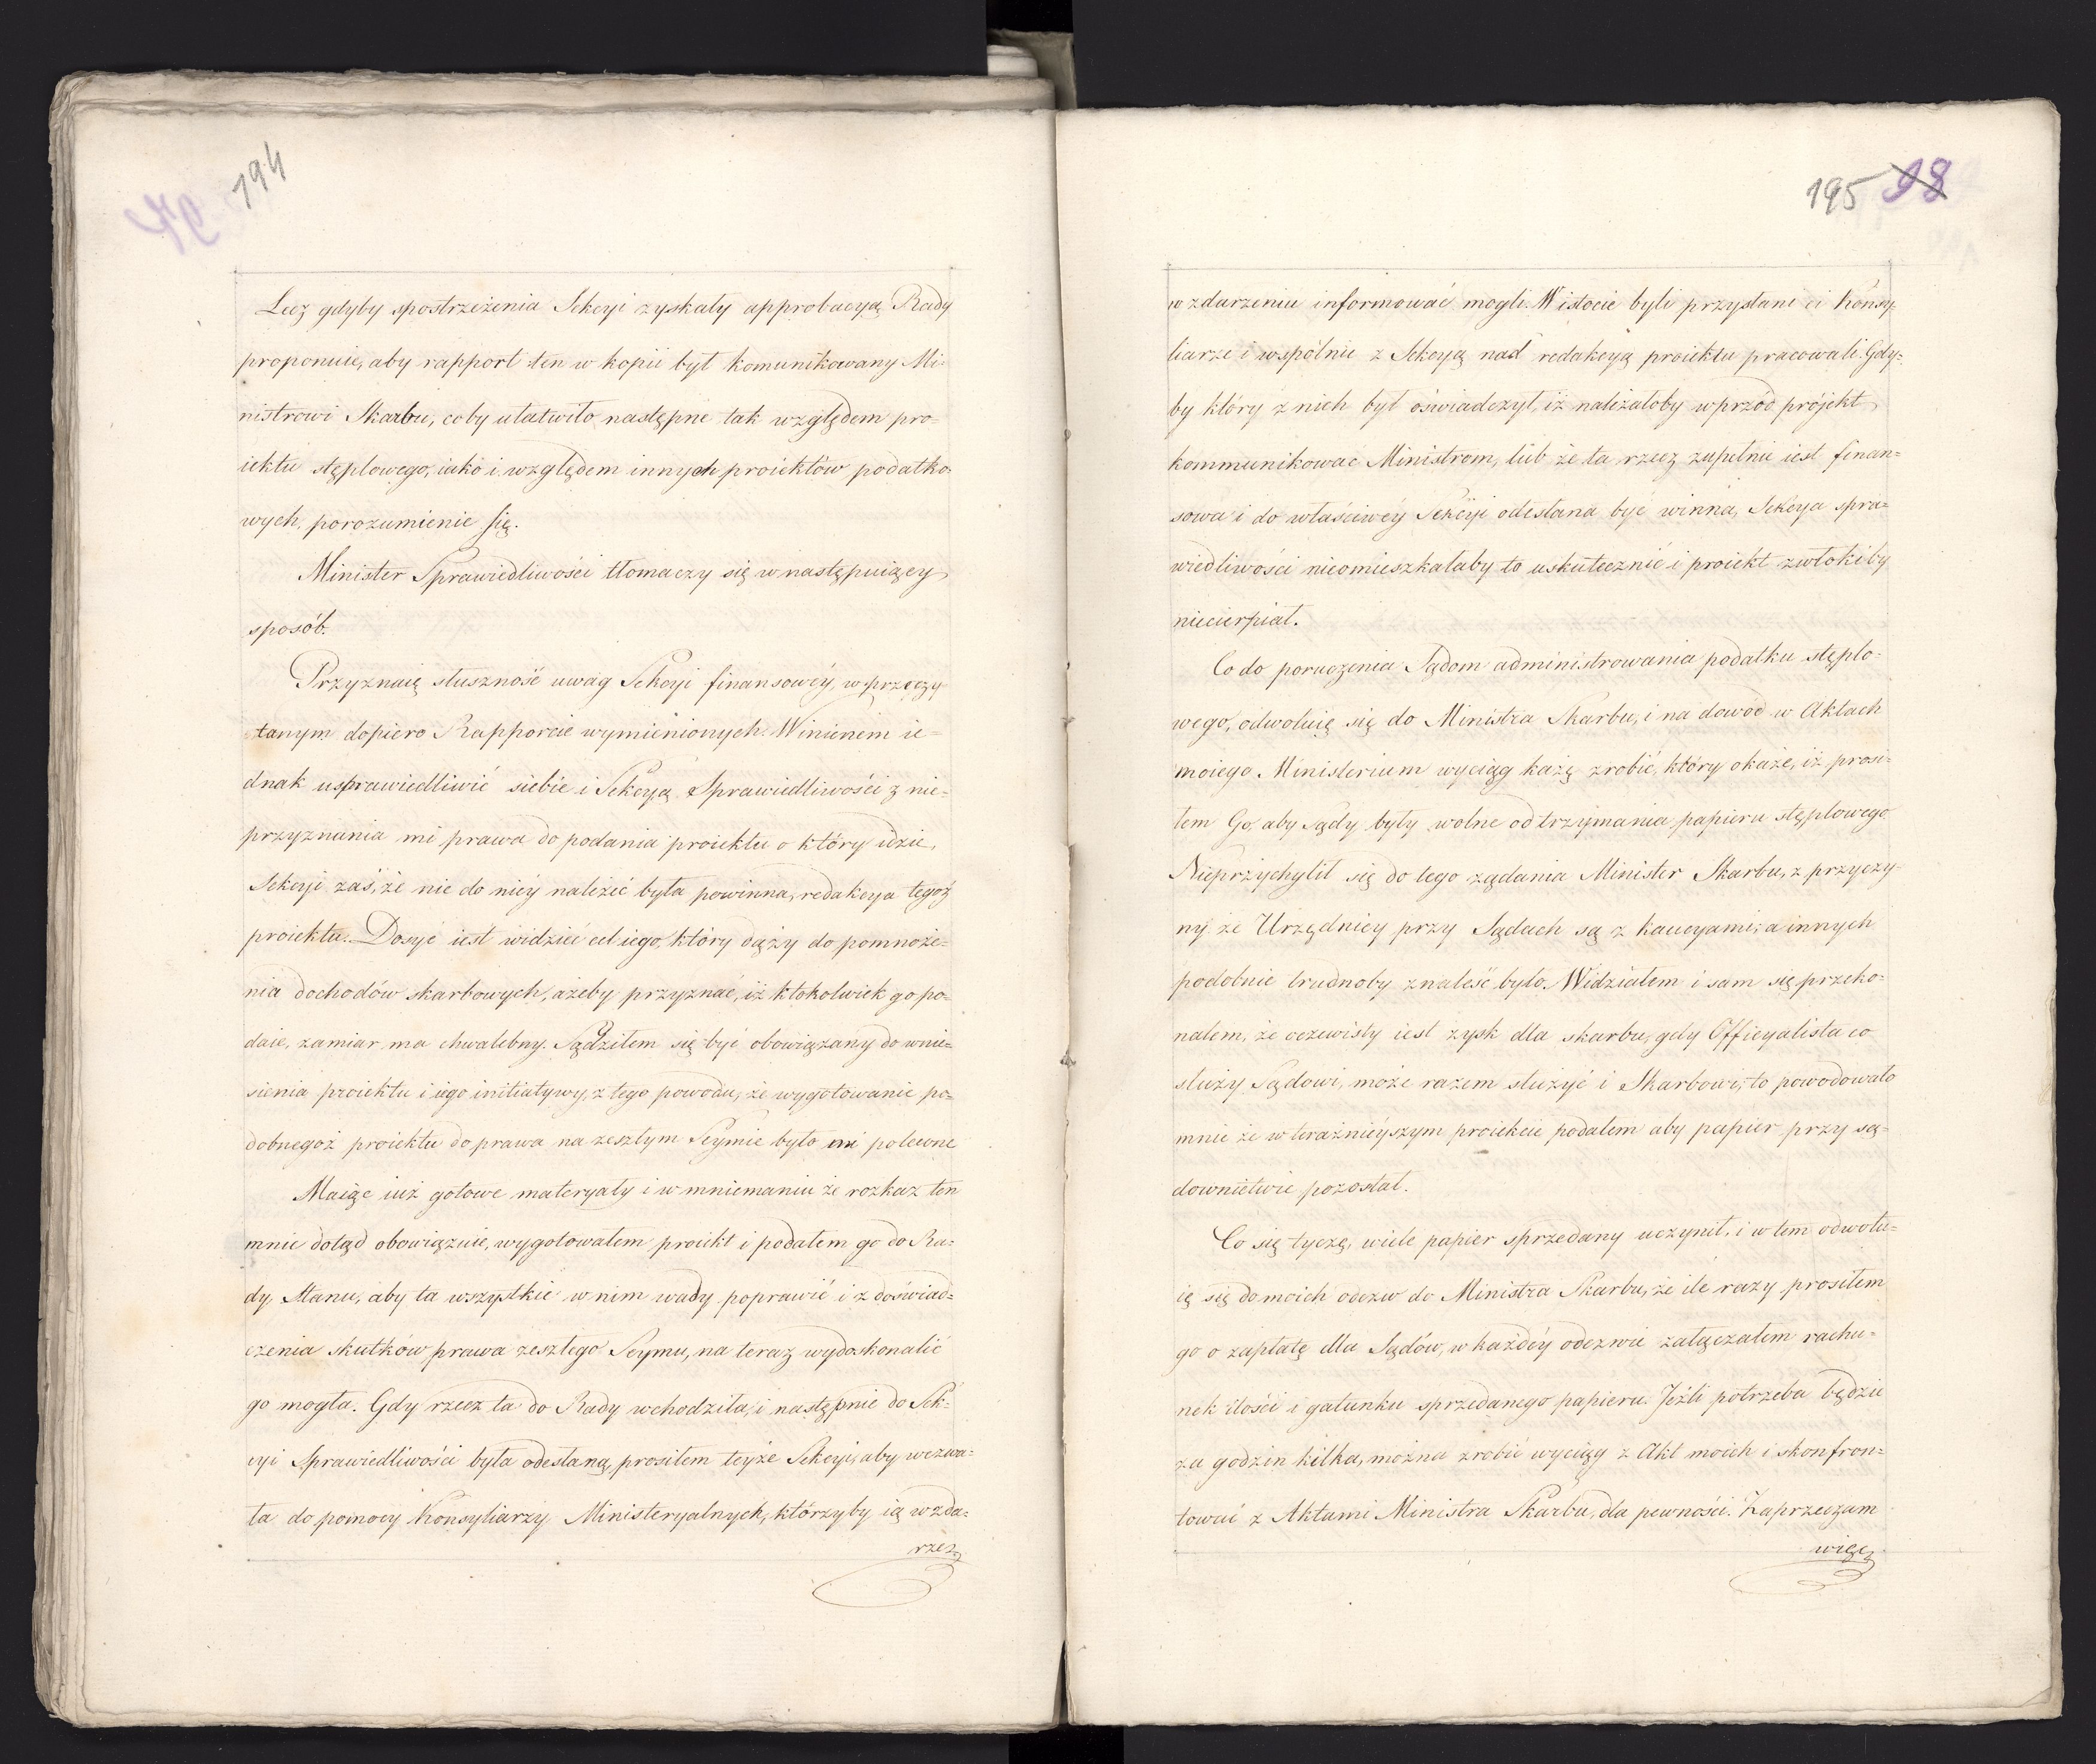 194
Lecz gdyby spostrzeżenia Sekcyi zyskały approbacyą Rady
proponuie, aby rapport ten w kopii był komunikowany Mi-
nistrowi Skarbu, coby ułatwiło następne tak względem pro=
iektu stęplowego, iako i względem innych proiektów podatko-
wych, porozumienie się.
Minister Sprawiedliwości tłomaczy się w następuiący
sposób.
Przyznaię słuszność uwag Sekcyi finansowéy, w przeczy-
tanym dopiero Rapporcie wymienionych. Winienem ie=
dnak usprawiedliwić siebie i Sekcyą Sprawiedliwości z nie-
przyznania mi prawa do podania proiektu o który idzie,
Sekcyi zaś, że nie do niéy należeć była powinna, redakcya tegoż
proiektu. Dosyć iest widzieć cel iego, który dąży do pomnoże-
nia dochodów skarbowych, ażeby przyznać, iż ktokolwiek go po-
daie, zamiar ma chwalebny. Sądziłem się być obowiązany do wnie=
sienia proiektu i iego initiatywy, z tego powodu, że wygotowanie po=
dobnegoż proiektu do prawa na zeszłym Seymie było mi polecone
Maiąc iuż gotowe materyały i w mniemaniu że rozkaz ten
mnie dotąd obowiązuie, wygotowałem proiekt i podałem go do Ra=
dy Stanu, aby ta wszystkie w nim wady poprawić i z doświad=
czenia skutków prawa zeszłego Seymu, na teraz wydoskonalić
go mogła. Gdy rzecz ta do Rady wchodziła, i następnie do Sek-
cyi Sprawiedliwości była odesłaną, prosiłem teyże Sekcyi, aby wezwa=
ła do pomocy Konsyliarzy Ministeryalnych, którzyby ią w zda=
rzez
195 98
w zdarzeniu informować mogli. W istocie byli przysłani ci Konsy-
liarze i wspólnie z Sekcyą nad redakcyą proiektu pracowali. Gdy=
by który z nich był oświadczył, iż należałoby wprzód projekt
kommunikować Ministrom, lub że ta rzecz zupełnie iest finan=
sowa i do właściwéy Sekcyi odesłana być winna, Sekcya spra=
wiedliwości nieomieszkałaby to uskutecznić i proiekt zwłokiby
niecierpiał.
Co do poruczenia Sądom administrowania podatku stęplo-
wego, odwołuię się do Ministra Skarbu, i na dowód w Aktach
moiego Ministerium wyciąg każę zrobić, który okaże, iż prosi-
łem Go, aby Sądy były wolne od trzymania papieru stęplowego
Nieprzychylił się do tego żądania Minister Skarbu, z przyczy-
ny że Urzędnicy przy Sądach są z kaucyami, a innych
podobnie trudnoby znaleść było. Widziałem i sam się przeko-
nałem, że oczewisty iest zysk dla skarbu, gdy Officyalista co
służy Sądowi, może razem służyć i Skarbowi, to powodowało
mnie że w teraźnieyszym proiekcie podałem aby papier przy są-
downictwie pozostał.
Co się tyczę, wiele papier sprzedany uczynił, i w tem odwołu=
ię się do moich odezw do Ministra Skarbu, że ile razy prosiłem
go o zapłatę dla Sądów, w każdéy odezwie załączałem rachu-
nek ilości i gatunku sprzedanego papieru. Jeżli potrzeba będzie
za godzin kilka, można zrobić wyciąg z Akt moich i skonfron=
tować z Aktami Ministra Skarbu, dla pewności. Zaprzeczam
więc